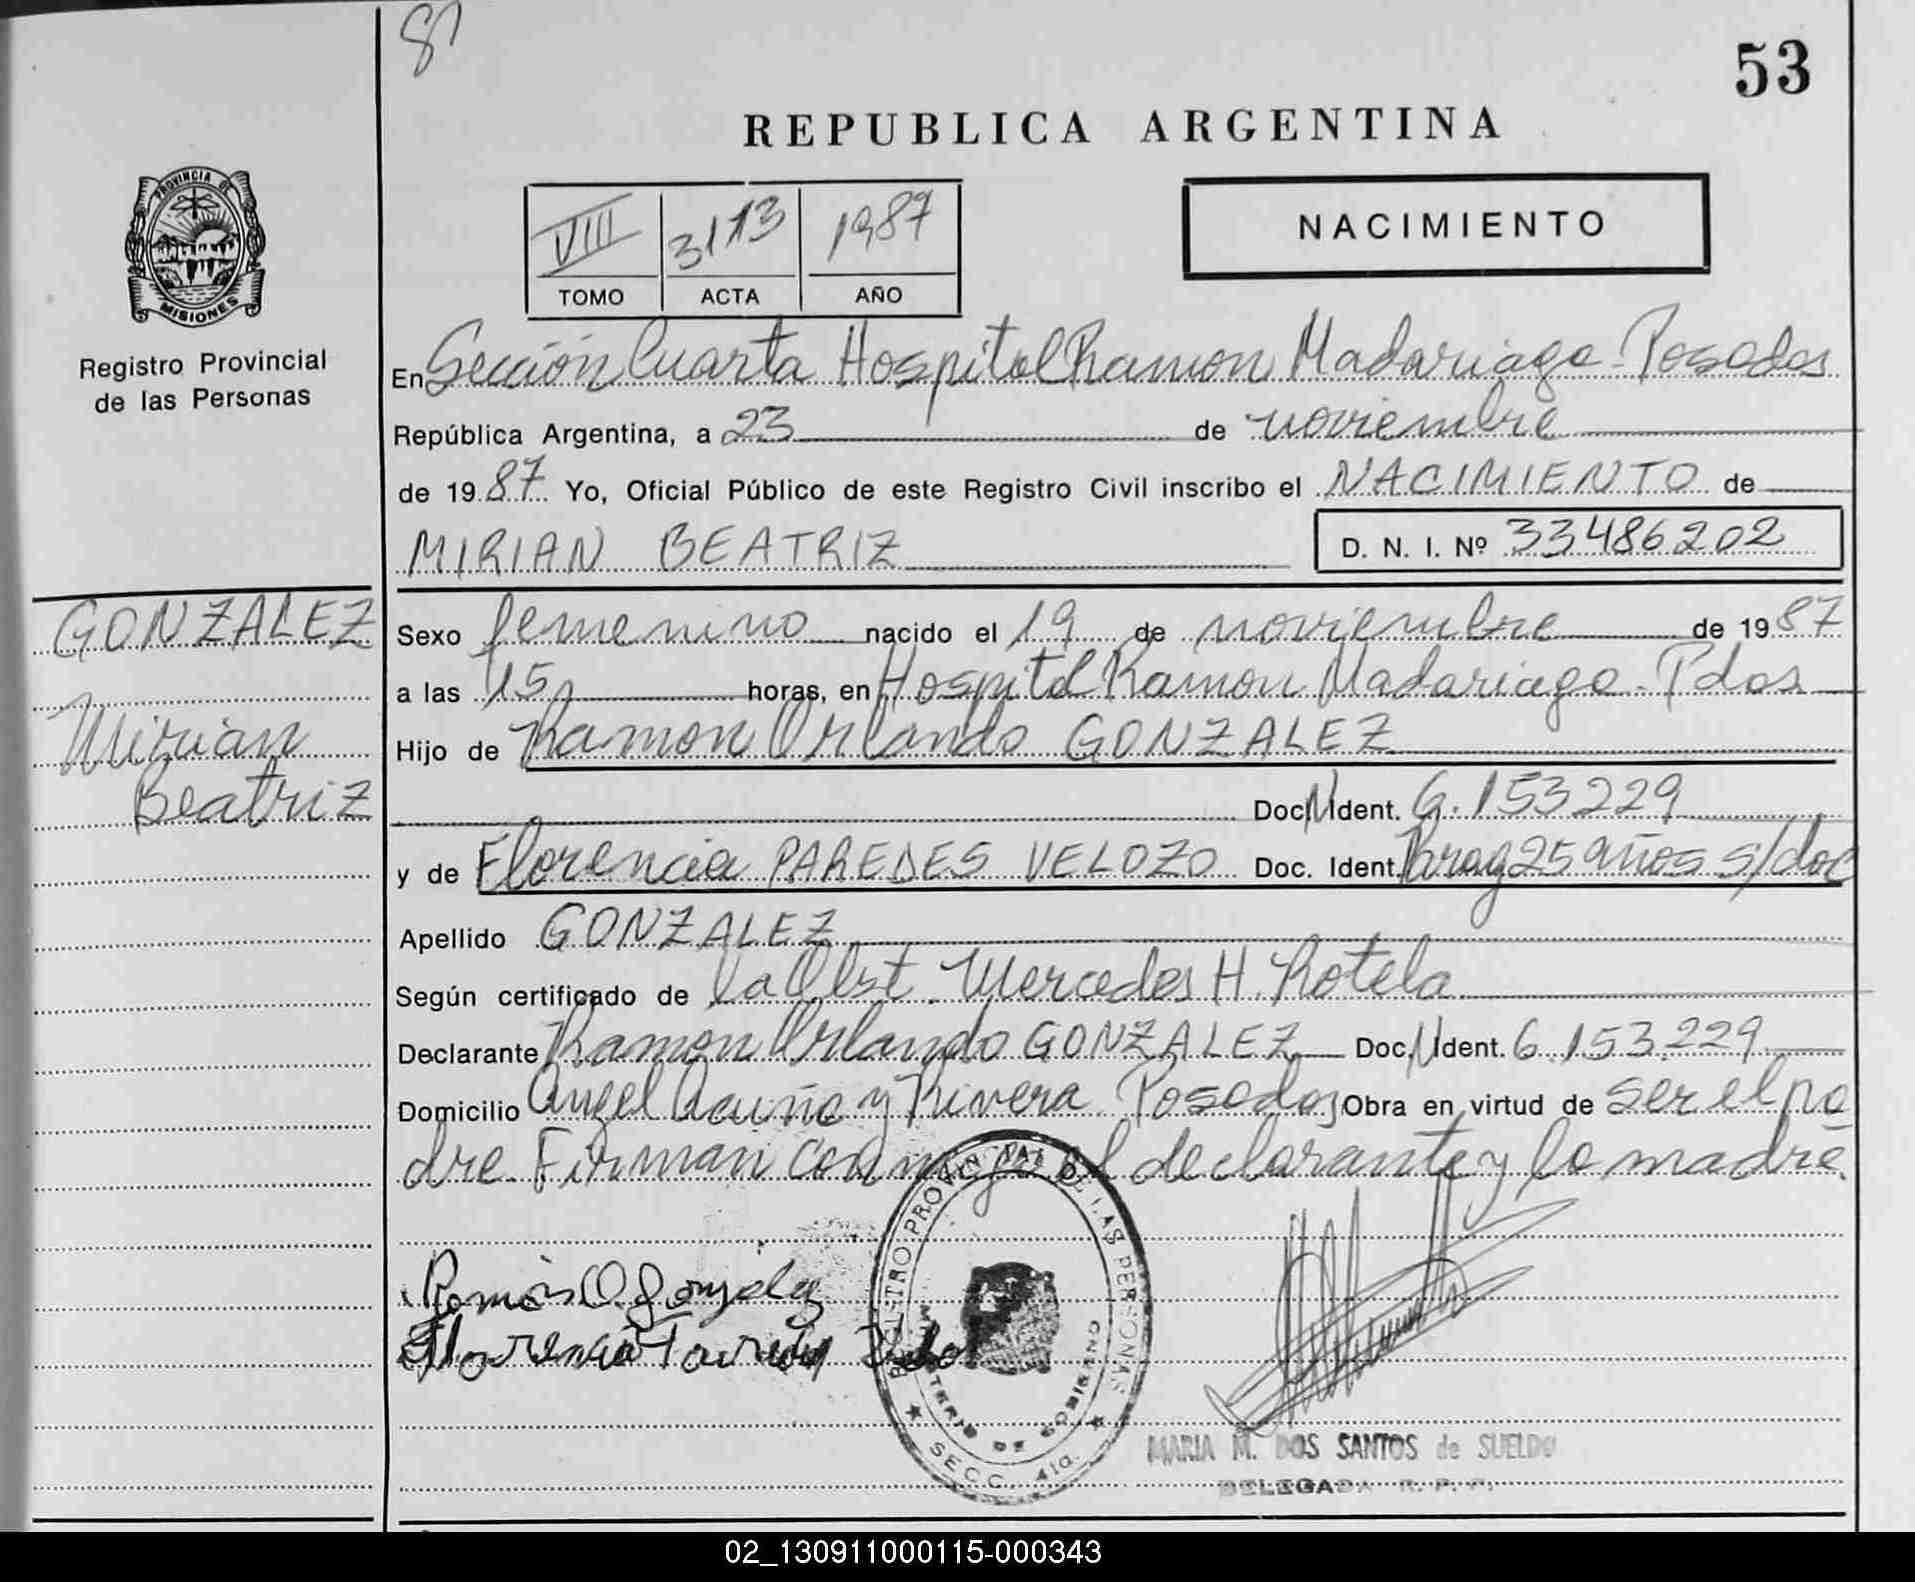 53
REPUBLICA ARGENTINA
PROVINCIA DE
MISIONES
Registro Provincial
de las Personas
VIII 3113 1987
TOMO ACTA AÑO
NACIMIENTO
En Sección Cuarta Hospital Ramon Madariaga - Posadas
República Argentina, a 23 de noviembre
de 19 87 Yo, Oficial Público de este Registro Civil inscribo el NACIMIENTO de
MIRIAN BEATRIZ D. N. I. Nº 33486202
GONZALEZ
Mirian
Beatriz
Sexo femenino nacido el 19 de noviembre de 19 87
a las 15 horas, en Hospital Ramon Madariaga - Pdas
Hijo de Ramon Orlando GONZALEZ
Doc. N Ident. 6.153229
y de Florencia PAREDES VELOZO Doc. Ident. Parag 25 años s/doc
Apellido GONZALEZ
Según certificado de la Obst. Mercedes H. Rotela
Declarante Ramon Orlando GONZALEZ Doc. N Ident. 6.153.229
Domicilio Angel Acuña y Rivera Posadas Obra en virtud de ser el pa
dre. Firman conmigo el declarante y la madre.
Ramón O. Gonzalez
Florencia Paredes
REGISTRO PROVINCIAL DE LAS PERSONAS
MINISTERIO DE GOBIERNO
SECC. 4ta.
MARIA M. DOS SANTOS de SUELDO
DELEGADA R. P. P.
02_130911000115-000343